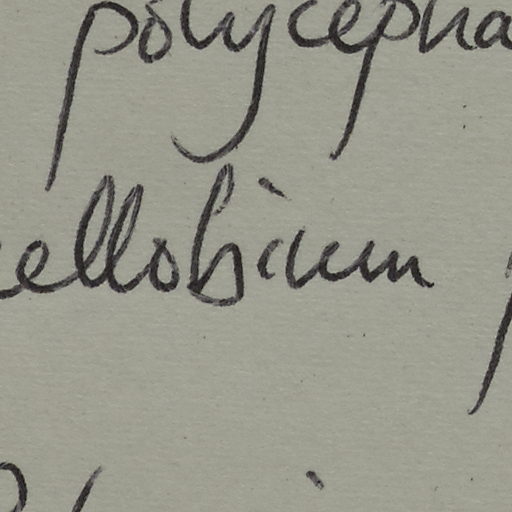 polycepha
ellobium